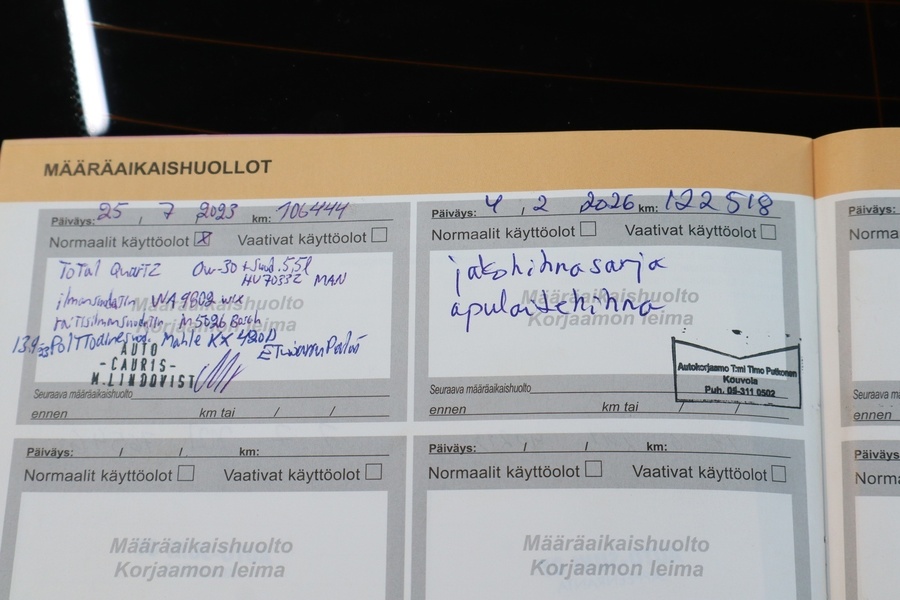 MÄÄRÄAIKAISHUOLLOT
Päiväys: 25 / 7 2023 km: 106444
Normaalit käyttöolot X Vaativat käyttöolot
Total Quartz 0w-30 + Suod. 5.5l
HU7033Z MAN
ilmansuodatin WA9802 wix
raitisilmansuodatin Bosch
13.9 Polttoainesuod. Mahle KX
Määräaikaishuolto
Korjaamon leima
AUTO
-CAURIS-
M.LINDQVIST
Seuraava määräaikaishuolto
ennen km tai / /
Päiväys: 4 / 2 2026 km: 122518
Normaalit käyttöolot Vaativat käyttöolot
jakohihnasarja
apulaitehihna
Määräaikaishuolto
Korjaamon leima
Autokorjaamo T:mi Timo Putkonen
Kouvola
Puh. 05-311 0502
Seuraava määräaikaishuolto
ennen km tai / /
Päiväys: / / km:
Normaalit käyttöolot Vaativat käyttöolot
Määräaikaishuolto
Korjaamon leima
Päiväys: / / km:
Normaalit käyttöolot Vaativat käyttöolot
Määräaikaishuolto
Korjaamon leima
Päiväys:
Seuraava
ennen
Päiväys